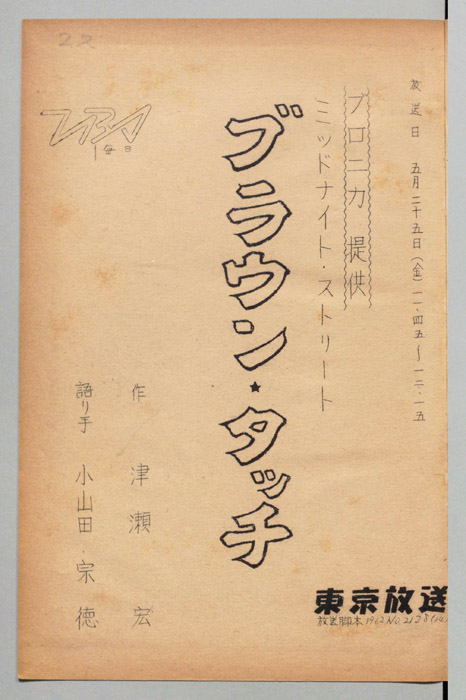 放送日 五月二十五日(金)一一・四五~一二・一五
ブロニカ 提供
ミッドナイト・ストリート
ブラウン・タッチ
作 津瀬 宏
語り手 小山田・宗徳
22
東京放送
放送脚本 1962 No.